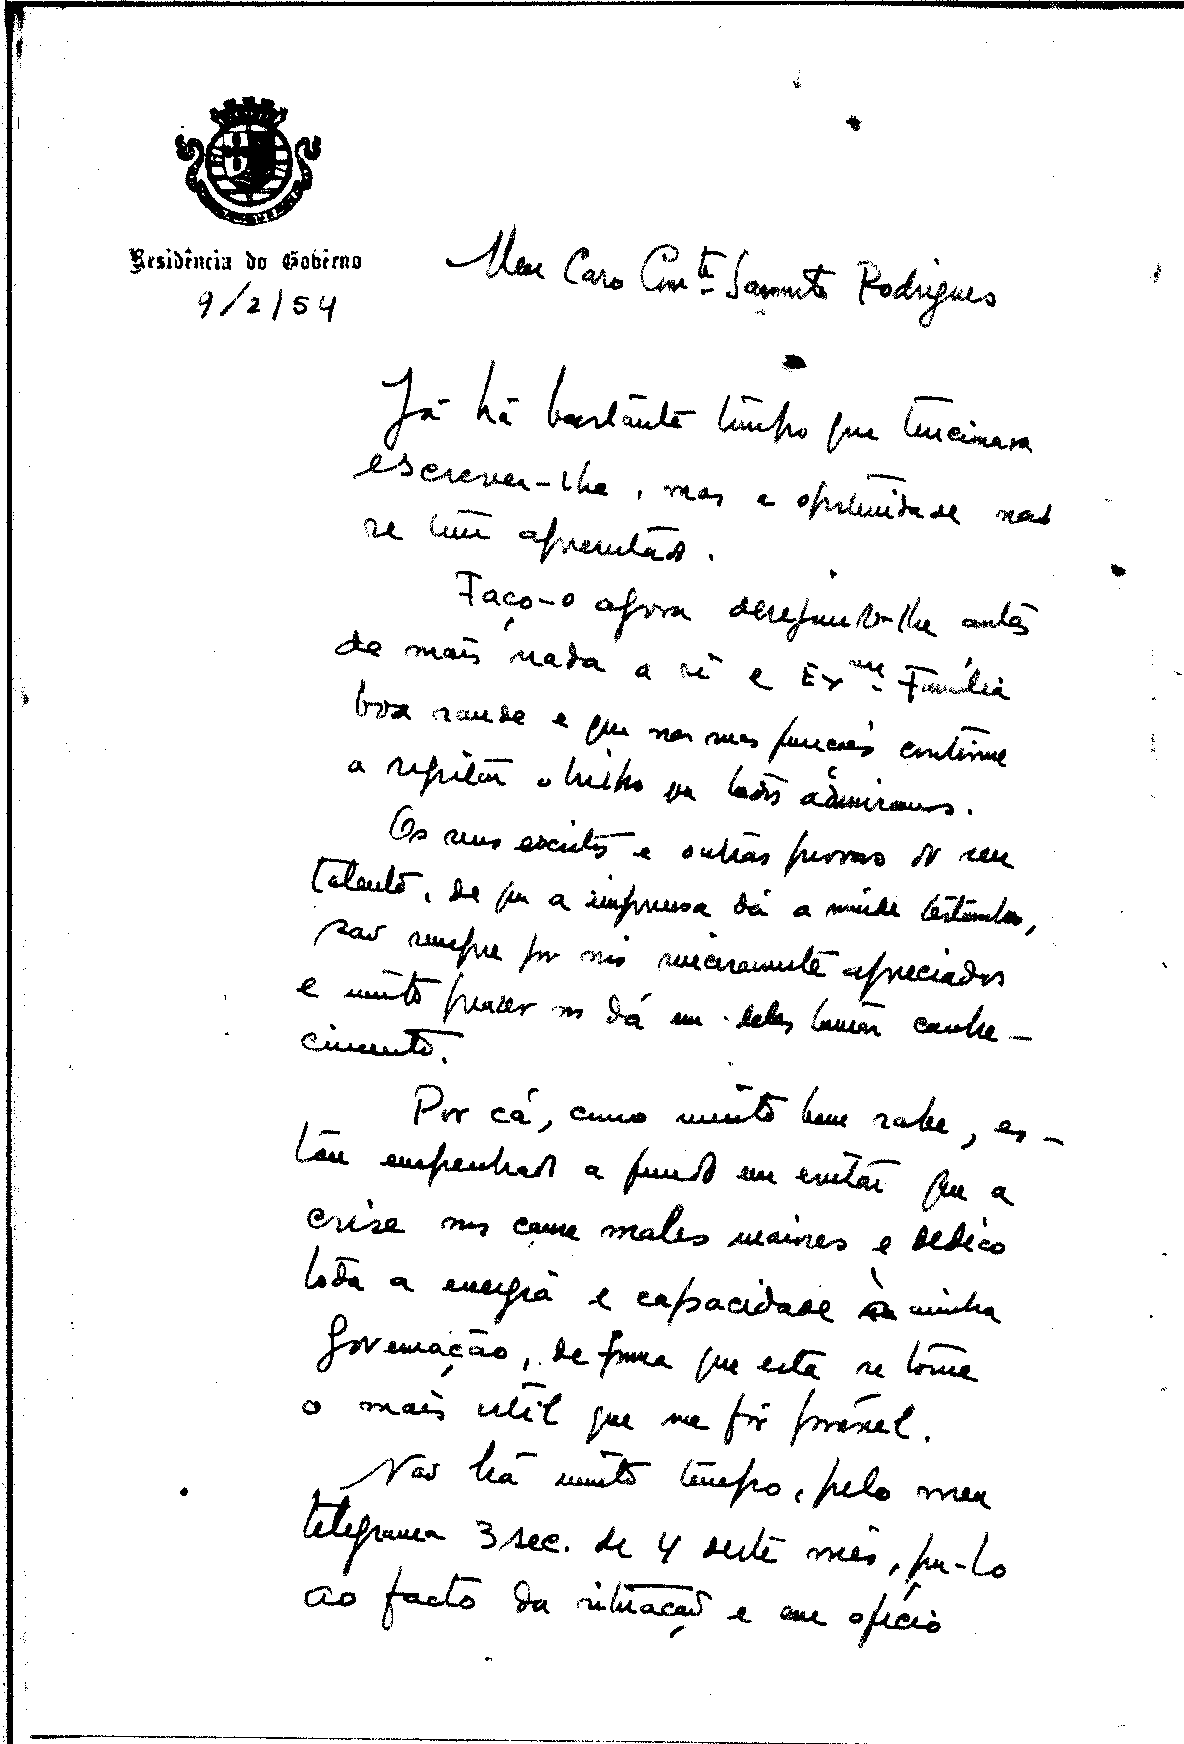 Residência do Govêrno
9/2/54
Meu Caro Com.te Sarmento Rodrigues
Já há bastante tempo que tencionava
escrever-lhe, mas a oportunidade não
se tem apresentado.
Faço-o agora desejando-lhe antes
de mais nada a si e Exma. Família
boa saude e que nas suas funções continue
a registar o brilho que todos admiramos.
Os seus escritos e outras provas do seu
talento, de que a imprensa dá a miúde testemunho,
são sempre por nós sinceramente apreciados
e muito prazer nos dá em deles tomar conhe-
cimento.
Por cá, como muito bem sabe, es-
tou empenhado a fundo em evitar que a
crise nos cause males maiores e dedico
toda a energia e capacidade à minha
governação, de forma que esta se torne
o mais util que me fôr possível.
Não há muito tempo, pelo meu
telegrama 3 sec. de 4 deste mês, pu-lo
ao facto da situação e em ofício